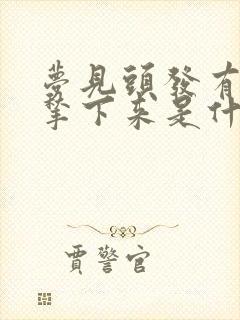 夢見頭發有
拿下來是什
賈警官